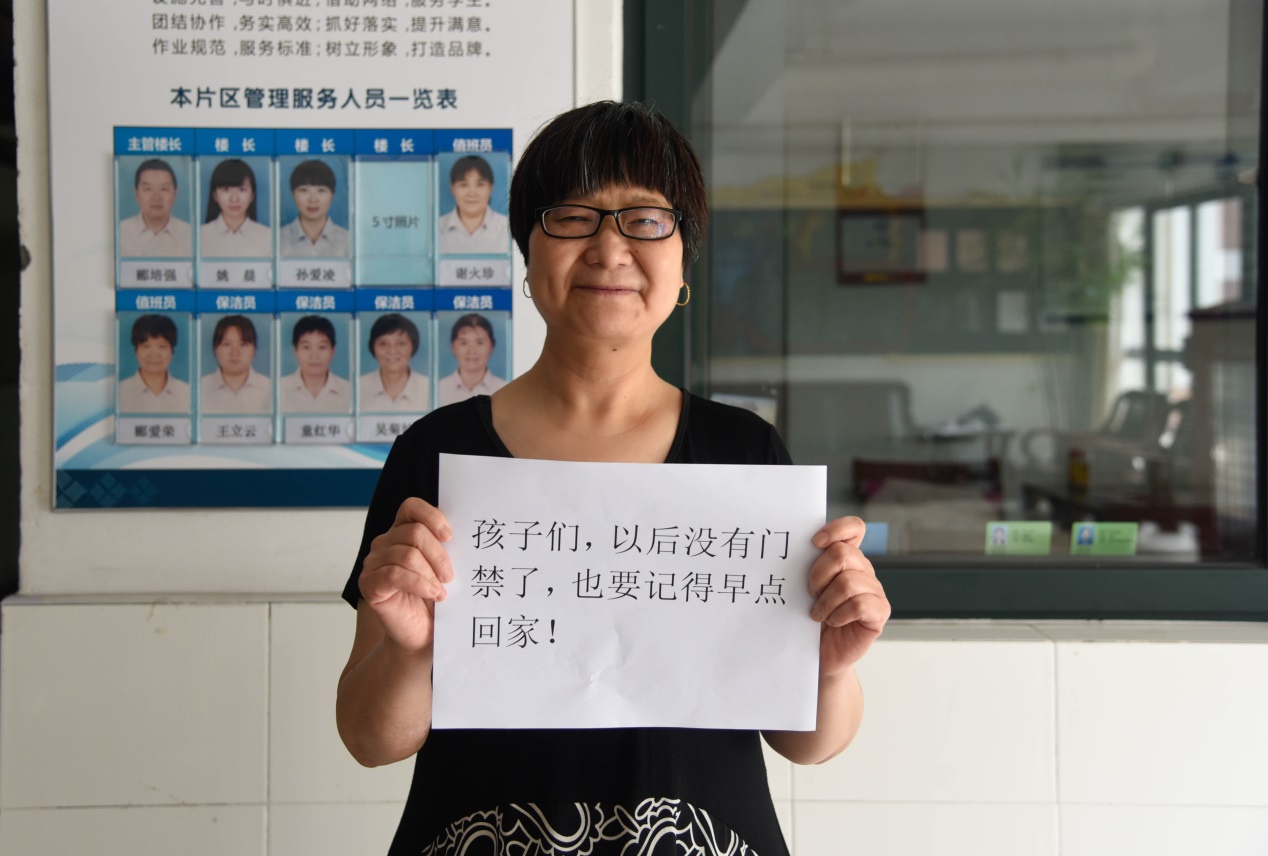 设施完善,与时俱进;借助网络,服务学生。
团结协作,务实高效;抓好落实,提升满意。
作业规范,服务标准;树立形象,打造品牌。
本片区管理服务人员一览表
主管楼长 楼 长 楼 长 楼 长 值班员
5寸照片
郦培强 姚 晨 孙爱凌 谢火珍
值班员 保洁员 保洁员 保洁员 保洁员
郦爱荣 王立云 童红华 吴菊
孩子们，以后没有门
禁了，也要记得早点
回家！